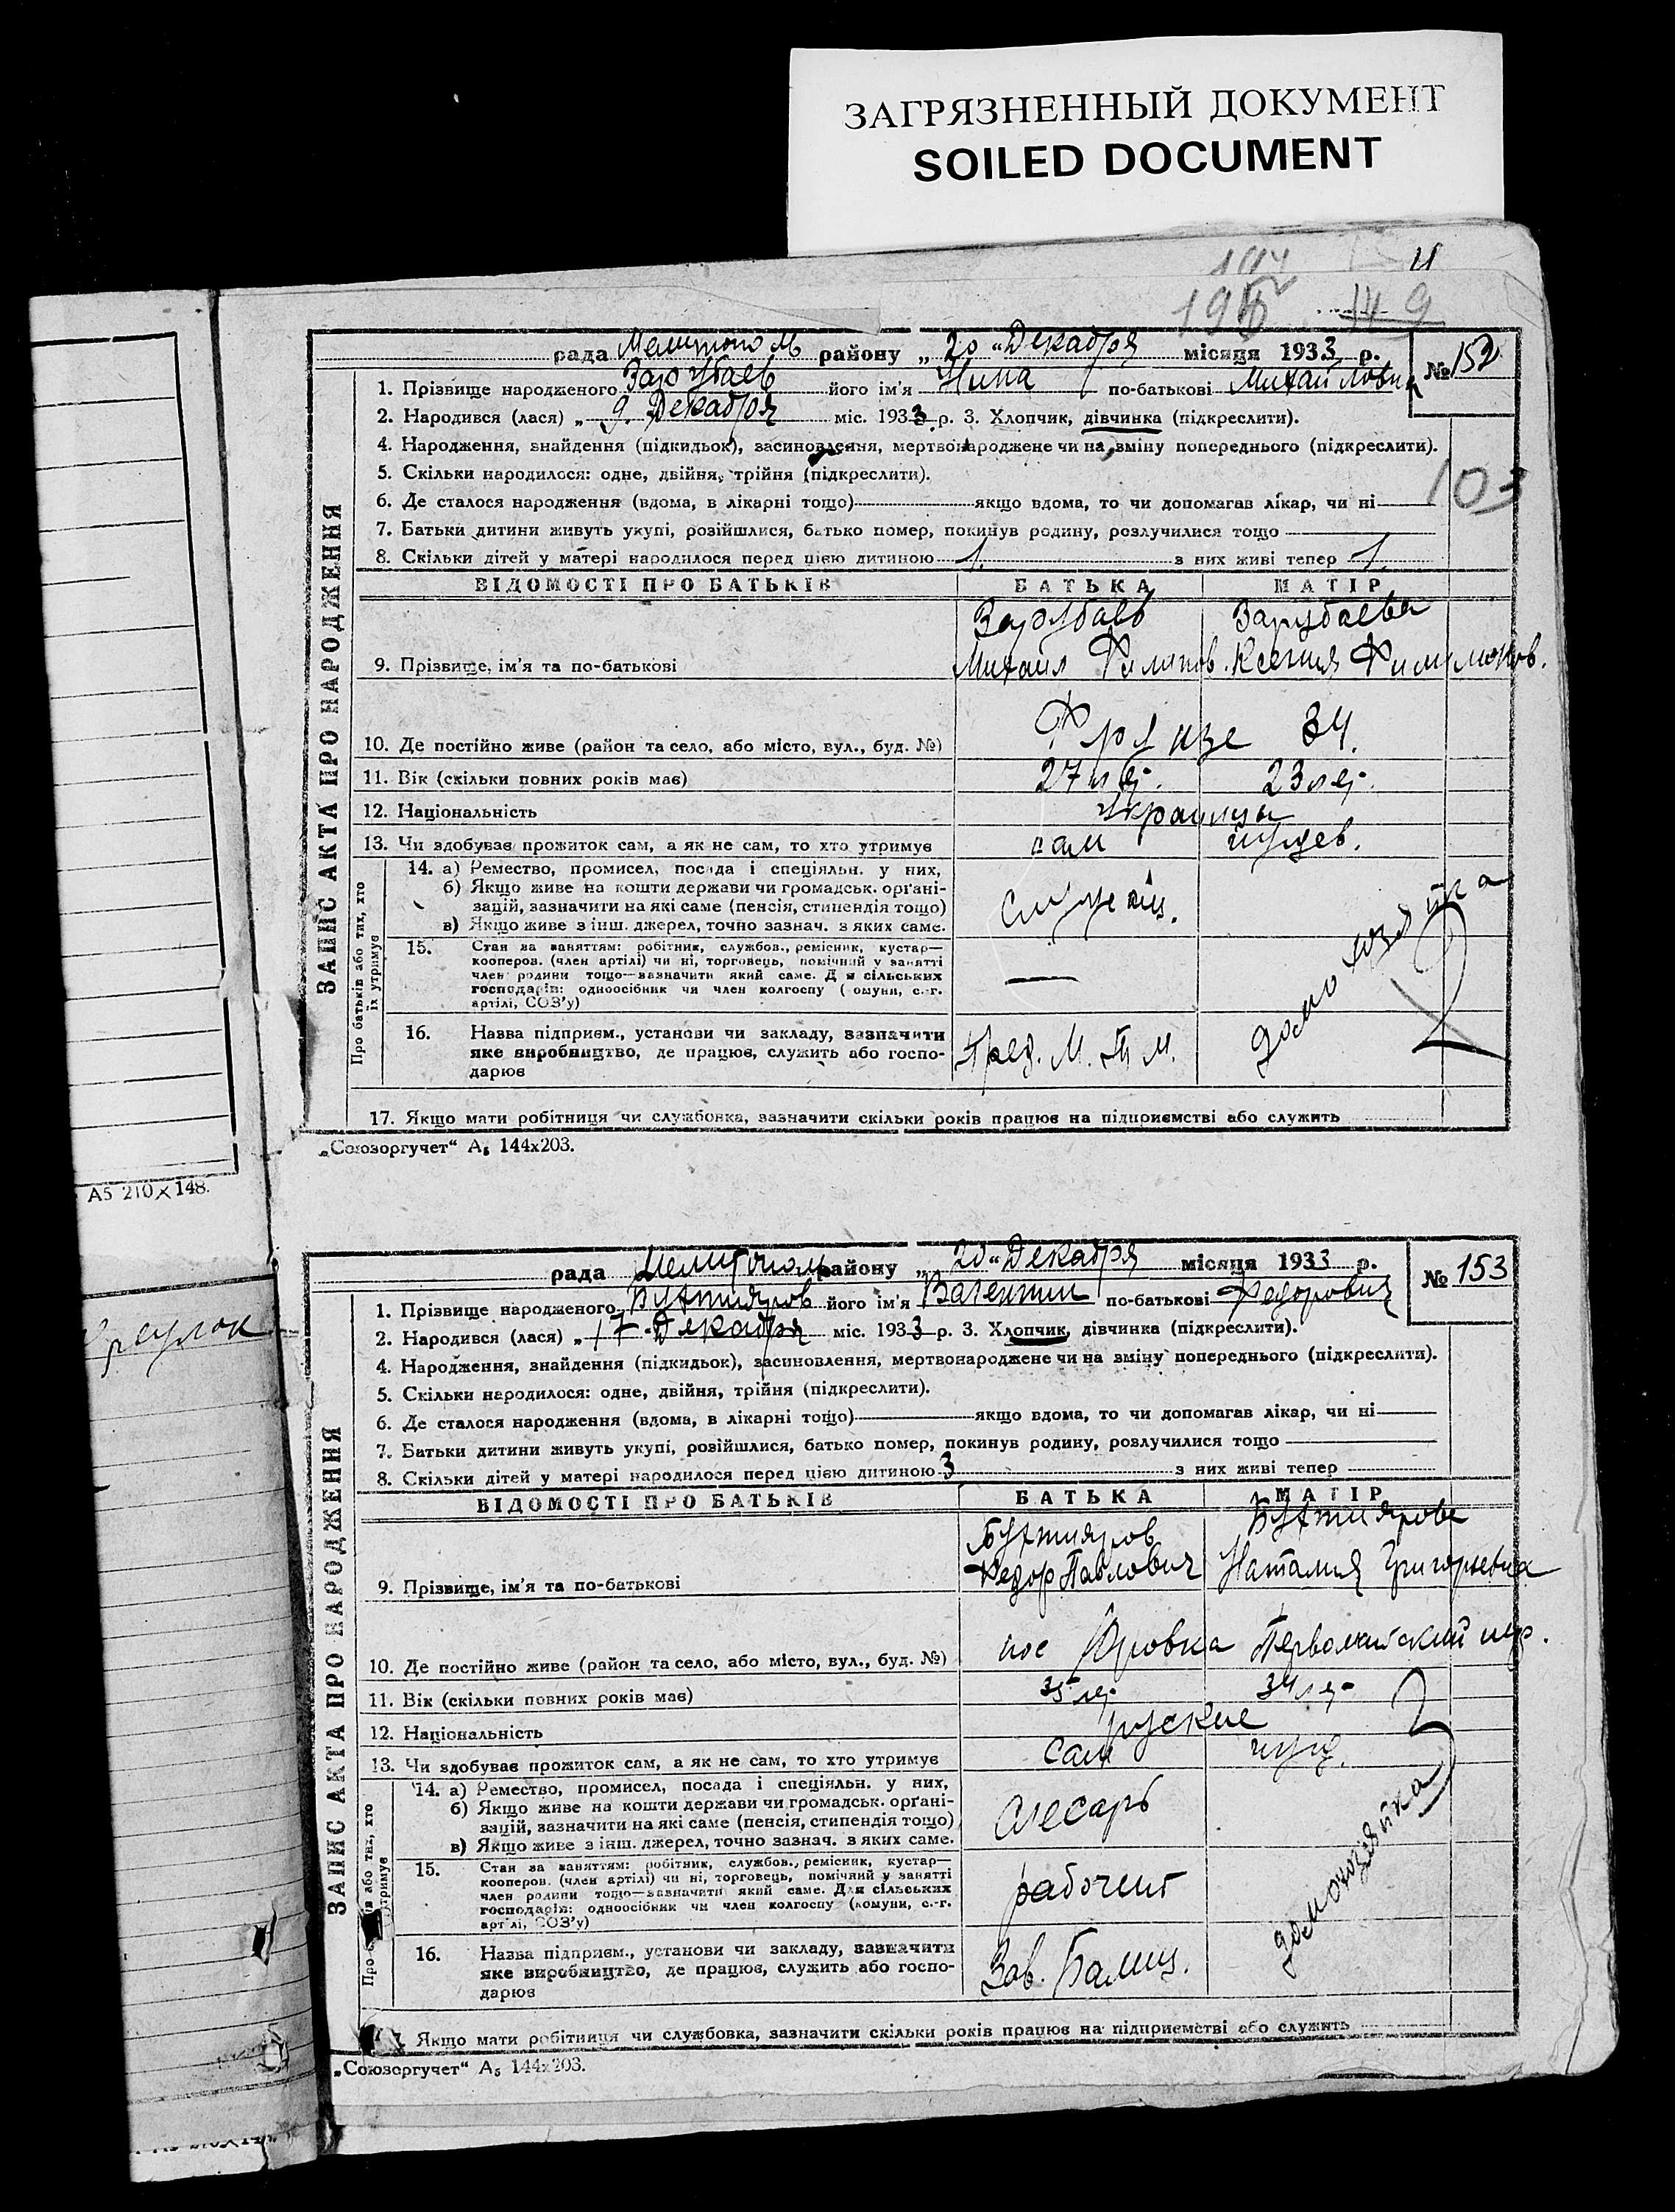 ЗАГРЯЗНЕННЫЙ ДОКУМЕНТ
SOILED DOCUMENT
149
рада Мелитополь району „20“ Декабря місяця 1933 р.
№ 152
1. Прізвище народженого Зарубаев його ім'я Нина по-батькові Михайловна
2. Народився (лася) „ 9. Декабря міс. 1933 р. 3. Хлопчик, дівчинка (підкреслити).
4. Народження, знайдення (підкидьок), засиновлення, мертвонароджене чи на зміну попереднього (підкреслити).
5. Скільки народилося: одне, двійня, трійня (підкреслити).
103
6. Де сталося народження (вдома, в лікарні тощо) якщо вдома, то чи допомагав лікар, чи ні
7. Батьки дитини живуть укупі, розійшлися, батько помер, покинув родину, розлучилися тощо
8. Скільки дітей у матері народилося перед цією дитиною 1. з них живі тепер 1.
ВІДОМОСТІ ПРО БАТЬКІВ БАТЬКА МАТІР
Зарубаев Зарубаева
9. Прізвище, ім'я та по-батькові Михаил Филипов. Ксения Филимонов.
10. Де постійно живе (район та село, або місто, вул., буд. №) Фрунзе 34.
11. Вік (скільки повних років має) 27 лет. 23 лет.
12. Національність Украинцы
13. Чи здобуває прожиток сам, а як не сам, то хто утримує сам иждев.
14. а) Ремество, промисел, посада і спеціяльн. у них,
б) Якщо живе на кошти держави чи громадськ. органі-
зацій, зазначити на які саме (пенсія, стипендія тощо)
в) Якщо живе з інш. джерел, точно зазнач. з яких саме.
служащ.
15. Стан за заняттям: робітник, службов., ремісник, кустар—
кооперов. (член артілі) чи ні, торговець, помічний у занятті
член родини тощо—зазначити який саме. Для сільських
господарів: одноосібник чи член колгоспу (комуни, с.-г.
артілі, СОЗ'у)
—
домохозяйка
16. Назва підприєм., установи чи закладу, зазначити
яке виробництво, де працює, служить або госпо-
дарює
ЗАПИС АКТА ПРО НАРОДЖЕННЯ
Про батьків або тих, хто
їх утримує
17. Якщо мати робітниця чи службовка, зазначити скільки років працює на підприємстві або служить
„Союзоргучет“ А5 144х203.
А5 210х148.
рада Мелитополь району „20“ Декабря місяця 1933 р.
№ 153
1. Прізвище народженого Бухтияров його ім'я Валентин по-батькові Федорович
2. Народився (лася) „ 17 Декабря міс. 1933 р. 3. Хлопчик, дівчинка (підкреслити).
4. Народження, знайдення (підкидьок), засиновлення, мертвонароджене чи на зміну попереднього (підкреслити).
5. Скільки народилося: одне, двійня, трійня (підкреслити).
6. Де сталося народження (вдома, в лікарні тощо) якщо вдома, то чи допомагав лікар, чи ні
7. Батьки дитини живуть укупі, розійшлися, батько помер, покинув родину, розлучилися тощо
8. Скільки дітей у матері народилося перед цією дитиною 3 з них живі тепер
ВІДОМОСТІ ПРО БАТЬКІВ БАТЬКА МАТІР
Бухтияров Бухтиярова
9. Прізвище, ім'я та по-батькові Федор Павлович Наталия Григорьевна
10. Де постійно живе (район та село, або місто, вул., буд. №) пос Юровка Первомайский
11. Вік (скільки повних років має) 35 лет 34 лет
12. Національність русские
13. Чи здобуває прожиток сам, а як не сам, то хто утримує сам ижд.
14. а) Ремество, промисел, посада і спеціяльн. у них,
б) Якщо живе на кошти держави чи громадськ. органі-
зацій, зазначити на які саме (пенсія, стипендія тощо)
в) Якщо живе з інш. джерел, точно зазнач. з яких саме.
слесарь
15. Стан за заняттям: робітник, службов., ремісник, кустар—
кооперов. (член артілі) чи ні, торговець, помічний у занятті
член родини тощо—зазначити який саме. Для сільських
господарів: одноосібник чи член колгоспу (комуни, с.-г.
артілі, СОЗ'у)
рабочий
домохозяйка
16. Назва підприєм., установи чи закладу, зазначити
яке виробництво, де працює, служить або госпо-
дарює
Зав.
ЗАПИС АКТА ПРО НАРОДЖЕННЯ
Якщо мати робітниця чи службовка, зазначити скільки років працює на підприємстві або служить
„Союзоргучет“ А5 144х203.